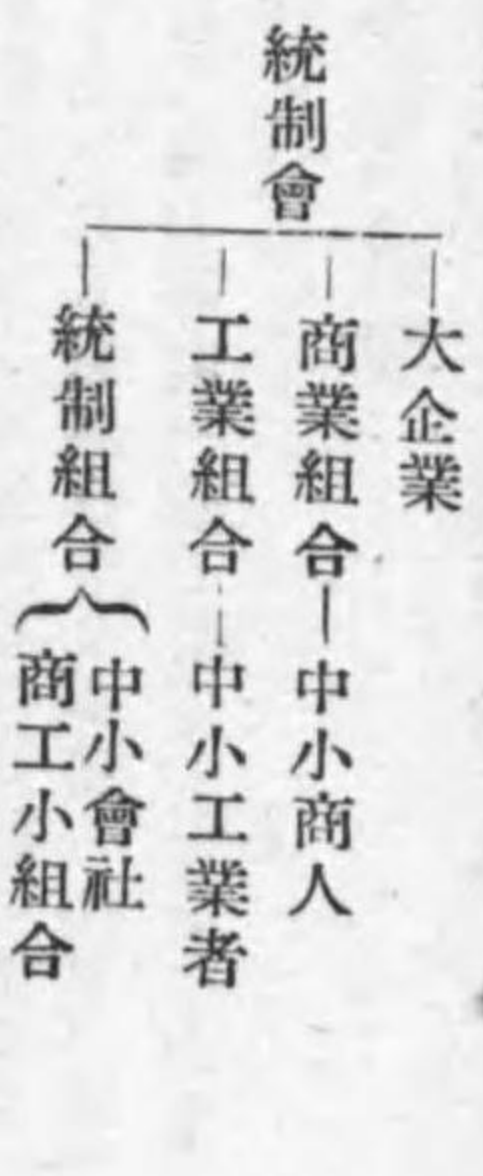 統制會
大企業
商業組合―中小商人
工業組合―中小工業者
統制組合
中小會社
商工小組合